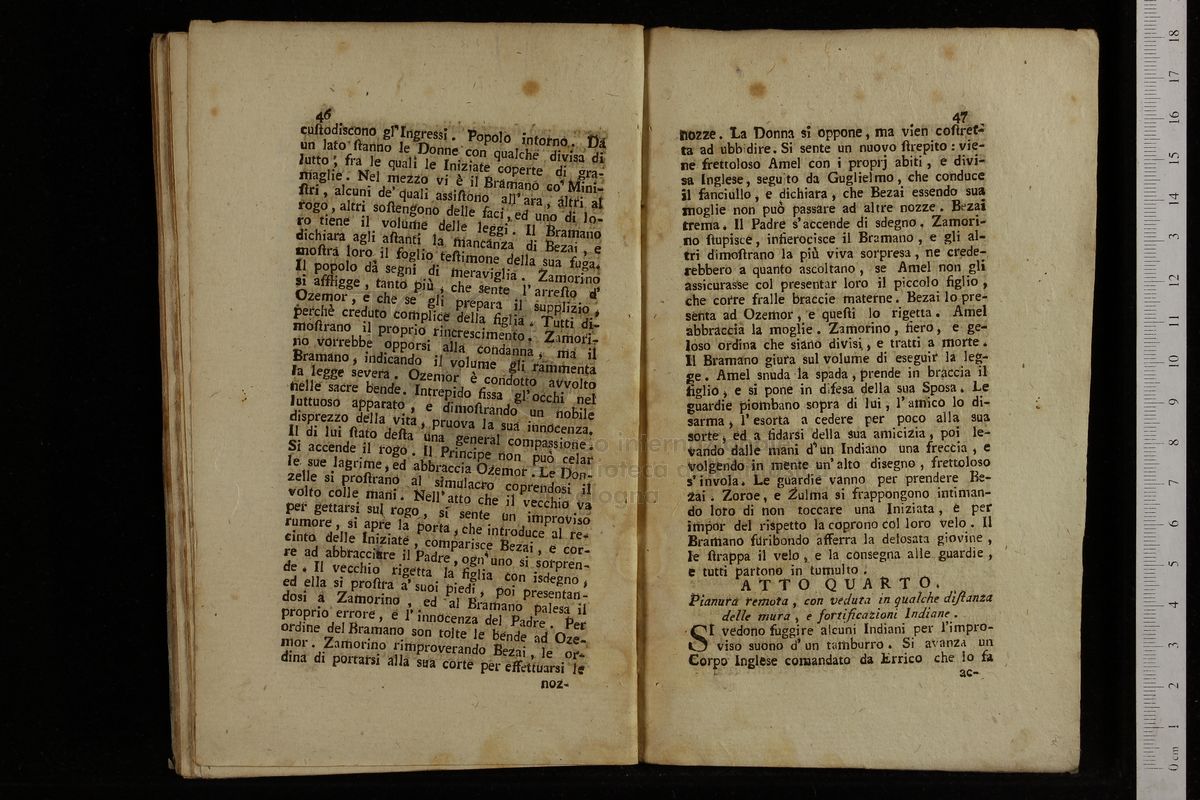 46
cuſtodiscono gl'Ingressi. Popolo intorno. Da
un lato ſtanno le Donne con qualche divisa di
lutto; fra le quali le Iniziate coperte di gra-
maglie. Nel mezzo vi è il Bramano co' Mini-
ſtri, alcuni de' quali assiſtono all'ara, altri al
rogo, altri soſtengono delle faci, ed uno di lo-
ro tiene il volume delle leggi. Il Bramano
dichiara agli aſtanti la mancanza di Bezai, e
moſtra loro il foglio teſtimone della sua fuga.
Il popolo dà segni di meraviglia. Zamorino
si affligge, tanto più, che sente l'arreſto d'
Ozemor, e che se gli prepara il supplizio,
perchè creduto complice della figlia. Tutti di-
moſtrano il proprio rincrescimento. Zamori-
no vorrebbe opporsi alla condanna, ma il
Bramano, indicando il volume gli rammenta
la legge severa. Ozemor è condotto avvolto
nelle sacre bende. Intrepido fissa gl'occhi nel
luttuoso apparato, e dimoſtrando un nobile
disprezzo della vita, pruova la sua innocenza.
Il di lui ſtato deſta una general compassione.
Si accende il rogo. Il Principe non può celar
le sue lagrime, ed abbraccia Ozemor. Le Don-
zelle si proſtrano al simulacro coprendosi il
volto colle mani. Nell'atto che il vecchio va
per gettarsi sul rogo, si sente un improviso
rumore, si apre la porta, che introduce al re-
cinto delle Iniziate, comparisce Bezai, e cor-
re ad abbracciare il Padre, ogn'uno si sorpren-
de. Il vecchio rigetta la figlia con isdegno,
ed ella si proſtra a' suoi piedi, poi presentan-
dosi a Zamorino, ed al Bramano palesa il
proprio errore, e l'innocenza del Padre. Per
ordine del Bramano son tolte le bende ad Oze-
mor. Zamorino rimproverando Bezai, le or-
dina di portarsi alla sua corte per effettuarsi le
noz-
47
nozze. La Donna si oppone, ma vien coſtret-
ta ad ubbidire. Si sente un nuovo ſtrepito: vie-
ne frettoloso Amel con i proprj abiti, e divi-
sa Inglese, seguito da Guglielmo, che conduce
il fanciullo, e dichiara, che Bezai essendo sua
moglie non può passare ad altre nozze. Bezai
trema. Il Padre s'accende di sdegno. Zamori-
no ſtupisce, infierocisce il Bramano, e gli al-
tri dimoſtrano la più viva sorpresa, ne crede-
rebbero a quanto ascoltano, se Amel non gli
assicurasse col presentar loro il piccolo figlio,
che corre fralle braccie materne. Bezai lo pre-
senta ad Ozemor, e queſti lo rigetta. Amel
abbraccia la moglie. Zamorino, fiero, e ge-
loso ordina che siano divisi, e tratti a morte.
Il Bramano giura sul volume di eseguir la leg-
ge. Amel snuda la spada, prende in braccia il
figlio, e si pone in difesa della sua Sposa. Le
guardie piombano sopra di lui, l'amico lo di-
sarma, l'esorta a cedere per poco alla sua
sorte, ed a fidarsi della sua amicizia, poi le-
vando dalle mani d'un Indiano una freccia, e
volgendo in mente un'alto disegno, frettoloso
s'invola. Le guardie vanno per prendere Be-
zai. Zoroe, e Zulma si frappongono intiman-
do loro di non toccare una Iniziata, e per
impor del rispetto la coprono col loro velo. Il
Bramano furibondo afferra la delosata giovine,
le ſtrappa il velo, e la consegna alle guardie,
e tutti partono in tumulto.
ATTO QUARTO.
Pianura remota, con veduta in qualche diſtanza
delle mura, e fortificazioni Indiane.
SI vedono fuggire alcuni Indiani per l'impro-
viso suono d'un tamburro. Si avanza un
Corpo Inglese comandato da Errico che lo fa
ac-